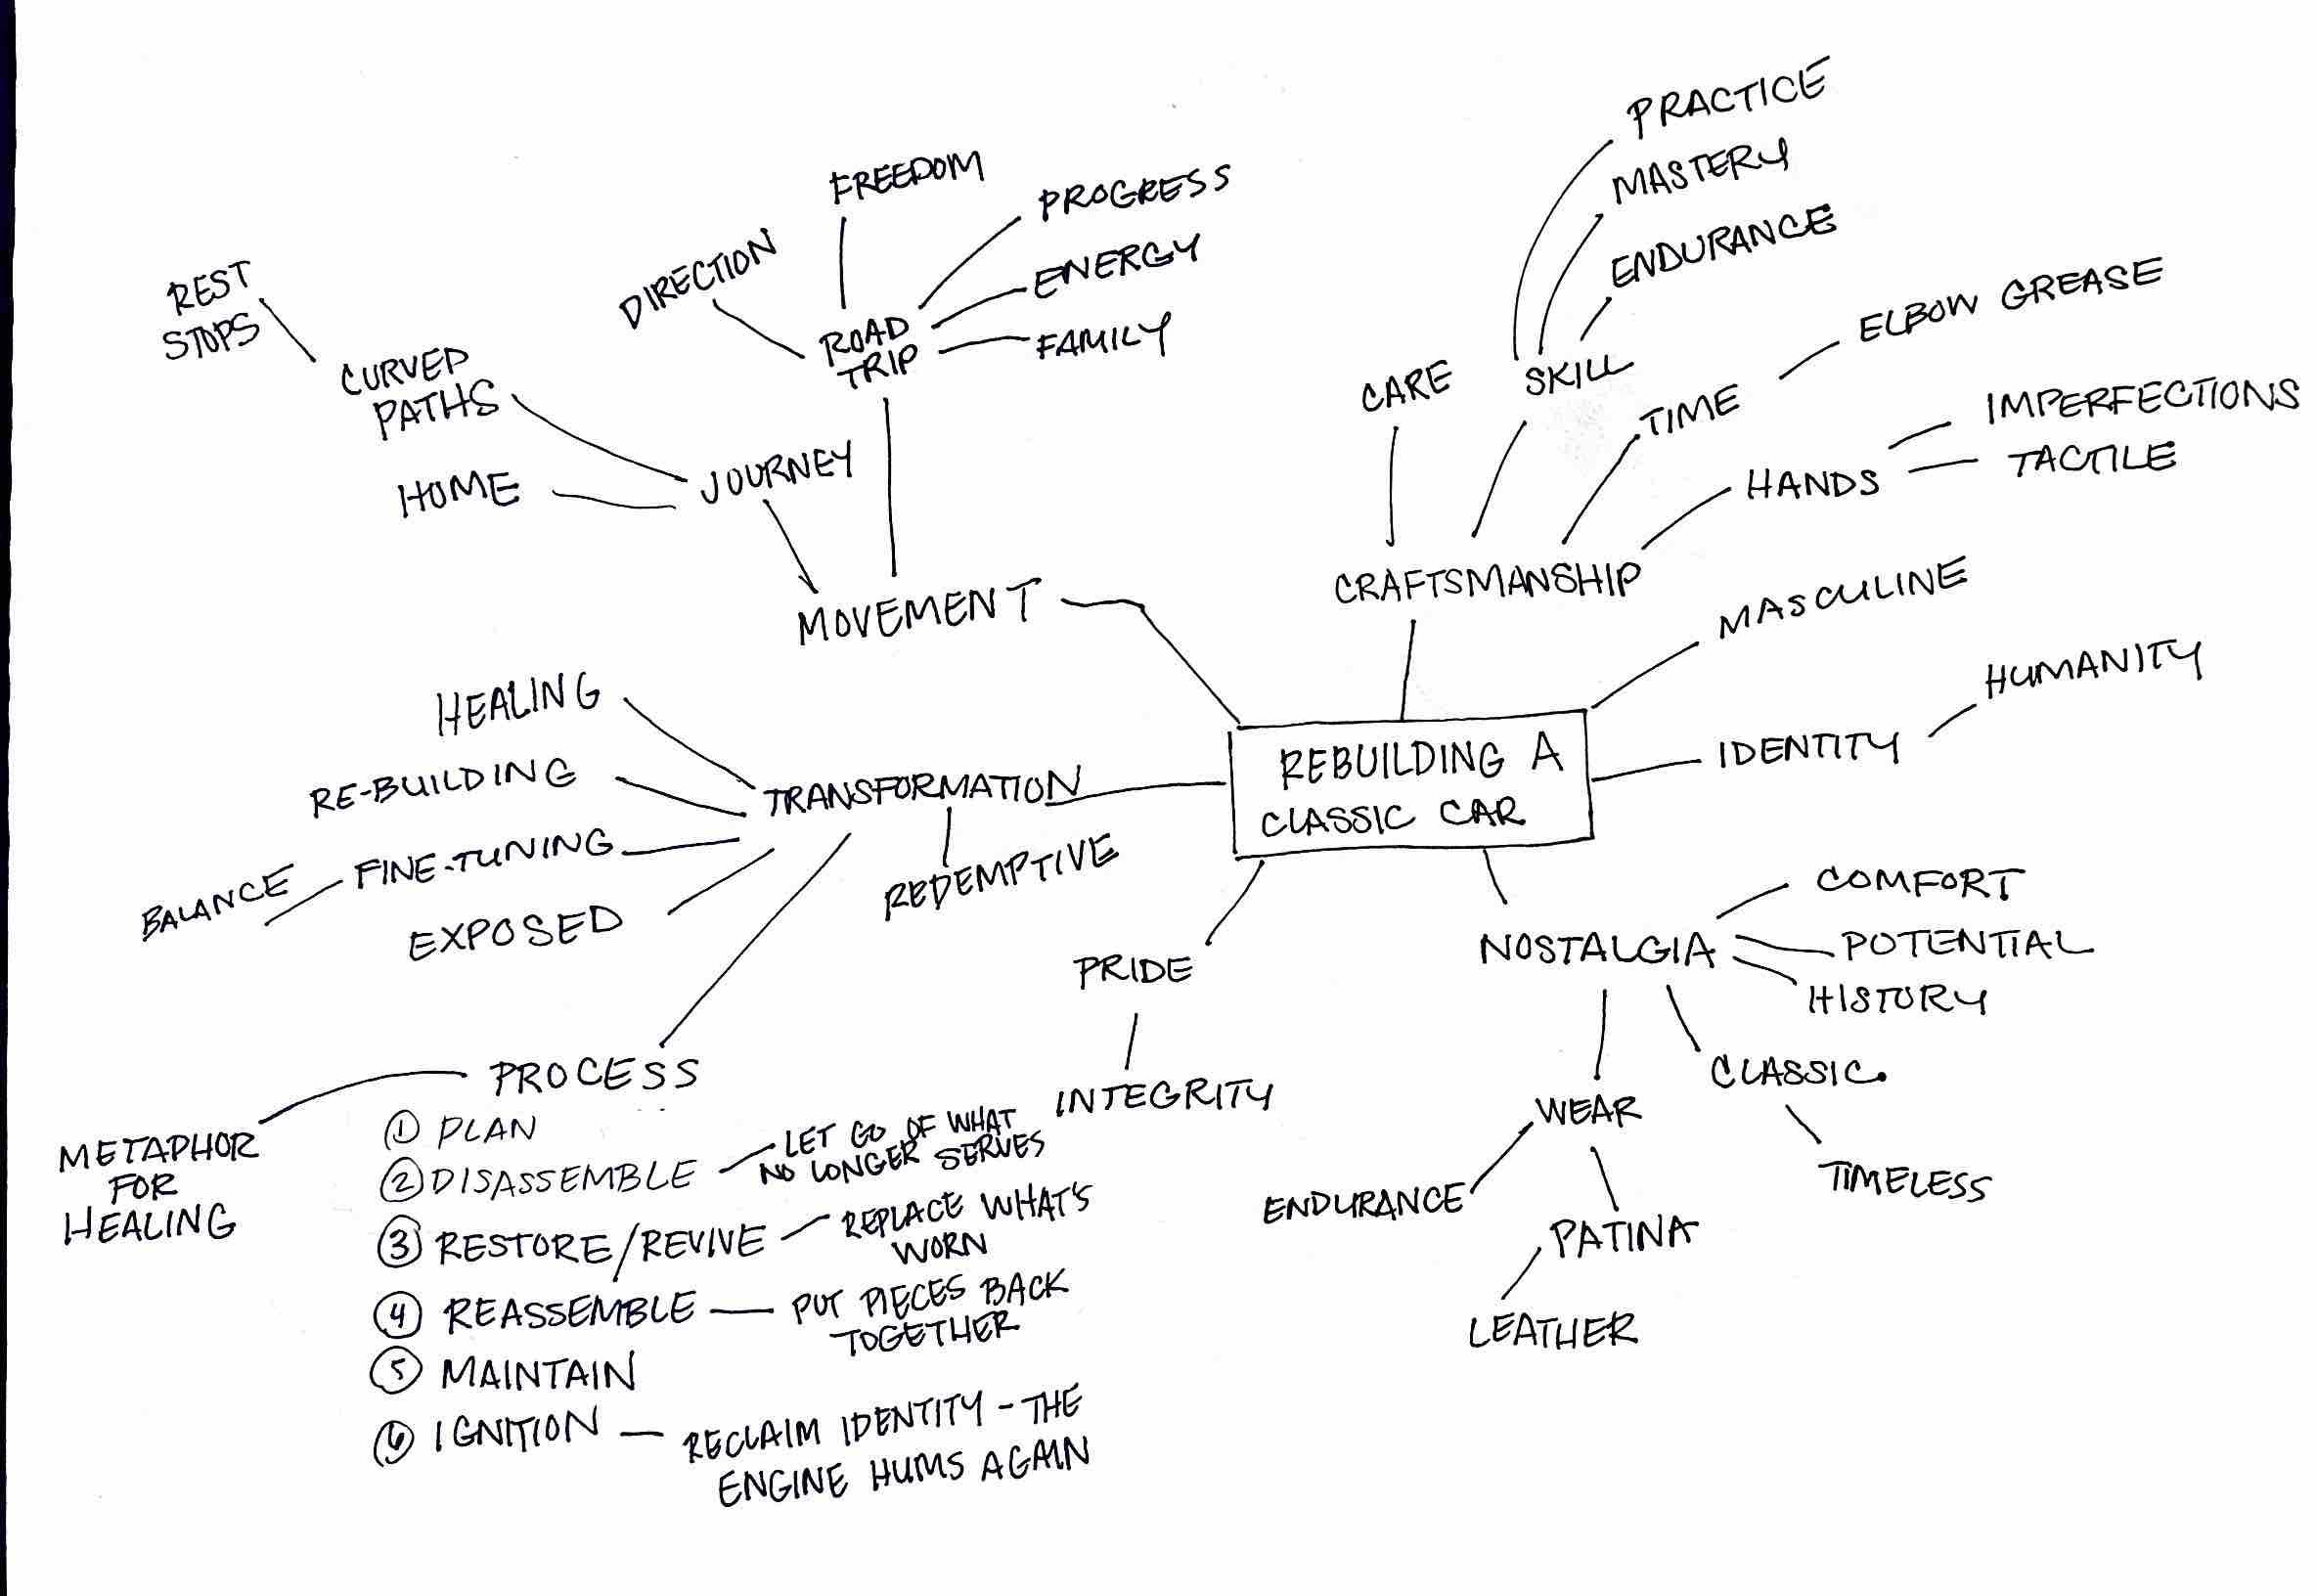 PRACTICE
MASTERY
ENDURANCE
FREEDOM
PROGRESS
ENERGY
FAMILY
DIRECTION
ROAD
TRIP
REST
STOPS
CURVED
PATHS
HOME
JOURNEY
MOVEMENT
ELBOW GREASE
CARE
SKILL
TIME
IMPERFECTIONS
TACTILE
HANDS
CRAFTSMANSHIP
MASCULINE
HUMANITY
IDENTITY
REBUILDING A
CLASSIC CAR
HEALING
RE-BUILDING
TRANSFORMATION
BALANCE
FINE-TUNING
EXPOSED
REDEMPTIVE
PRIDE
INTEGRITY
COMFORT
NOSTALGIA
POTENTIAL
HISTORY
CLASSIC.
TIMELESS
WEAR
ENDURANCE
PATINA
LEATHER
PROCESS
METAPHOR
FOR
HEALING
1 PLAN
2 DISASSEMBLE
LET GO OF WHAT
NO LONGER SERVES
3 RESTORE/REVIVE
REPLACE WHAT'S
WORN
4 REASSEMBLE — PUT PIECES BACK
TOGETHER
5 MAINTAIN
6 IGNITION — RECLAIM IDENTITY - THE
ENGINE HUMS AGAIN